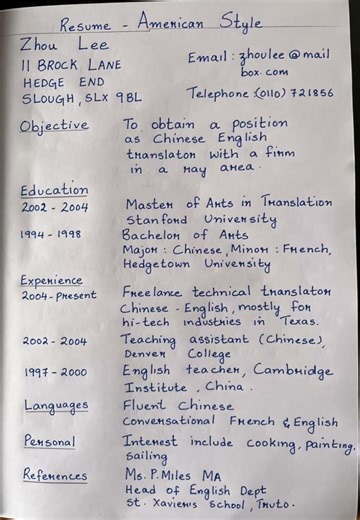 Resume - American Style
Zhou Lee
11 BROCK LANE
HEDGE END
SLOUGH, SLX 9BL
Email : zhoulee @ mail
box. com
Telephone :(0110) 721856
Objective To obtain a position
as Chinese English
translator with a firm
in a ray area.
Education
2002 - 2004 Master of Arts in Translation
Stanford University
1994 - 1998 Bachelor of Arts
Major : Chinese, Minor : French,
Hedgetown University
Experience
2004 - present Freelance technical translator
Chinese - English, mostly for
hi-tech industries in Texas.
2002 - 2004 Teaching assistant (Chinese),
Denver College
1997 - 2000 English teacher, Cambridge
Institute, China.
Languages Fluent Chinese
Conversational French & English
Personal Interest include cooking, painting,
sailing
References Ms. P. Miles MA
Head of English Dept
St. Xavier's School, Truto.